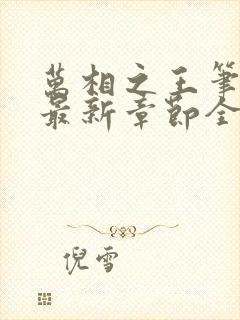 萬相之王筆
最新章節全
倪雪